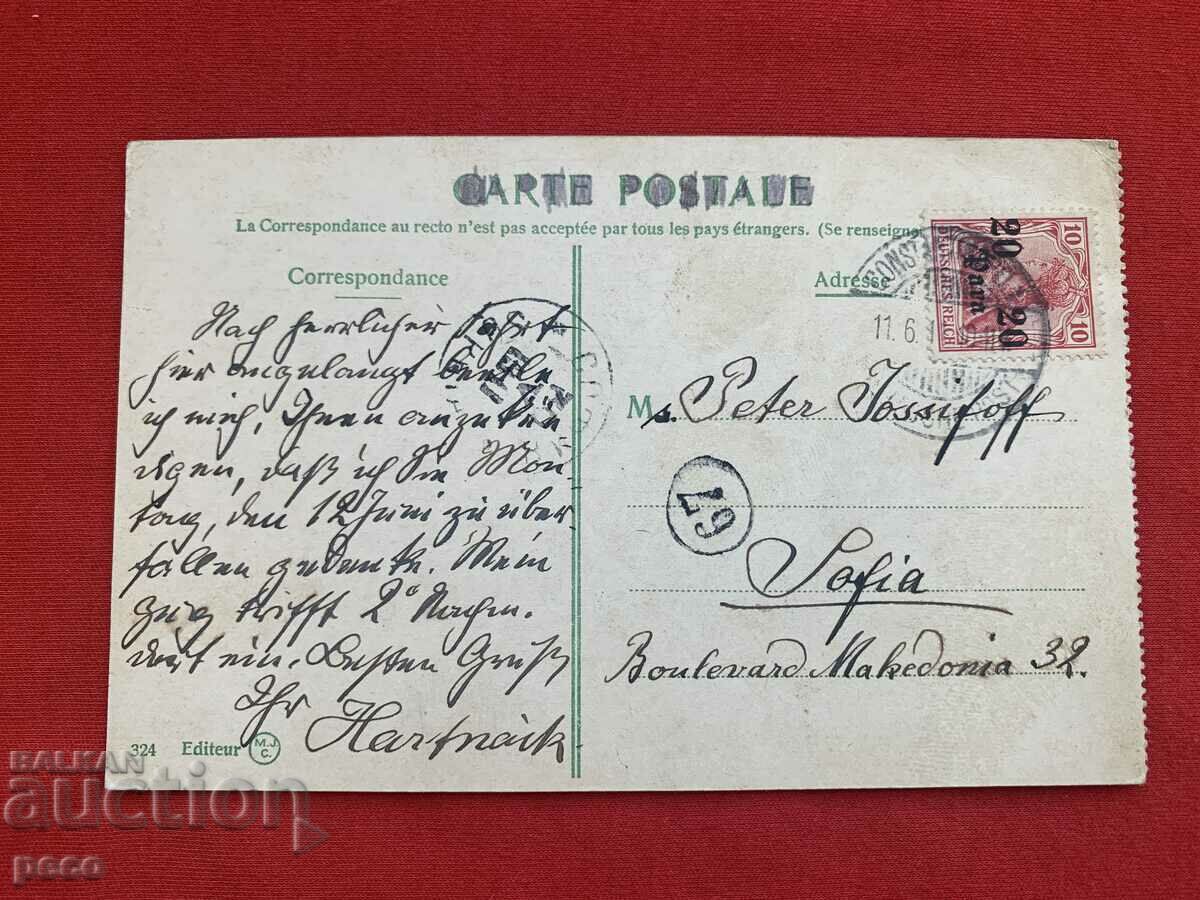 CARTE POSTALE
La Correspondance au recto n'est pas acceptée par tous les pays étrangers. (Se renseigne
Correspondance
Adresse
Nach herrlicher Fahrt
hier angelangt beeile
ich mich, Ihnen anzukün
digen, daß ich Sie Mon-
tag, den 12 Juni zu über-
fallen gedenke. Mein
Zug trifft 2° Nachm.
dort ein. Besten Gruß
Ihr Hartnack.
324 Editeur M.J.C.
DEUTSCHES REICH
10
10
20 Para 20
CONST
11.6.
67
Ms. Peter Jossifoff
Sofia
Boulevard Makedonia 32.
BALKAN
auction
peco